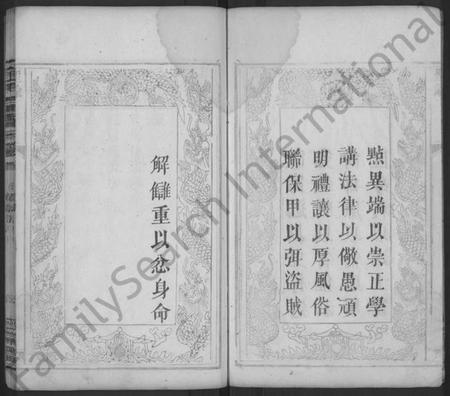 黜異端以崇正學
講法律以儆愚頑
明禮讓以厚風俗
聯保甲以弭盜賊
解讎重以忿身命
FamilySearch International